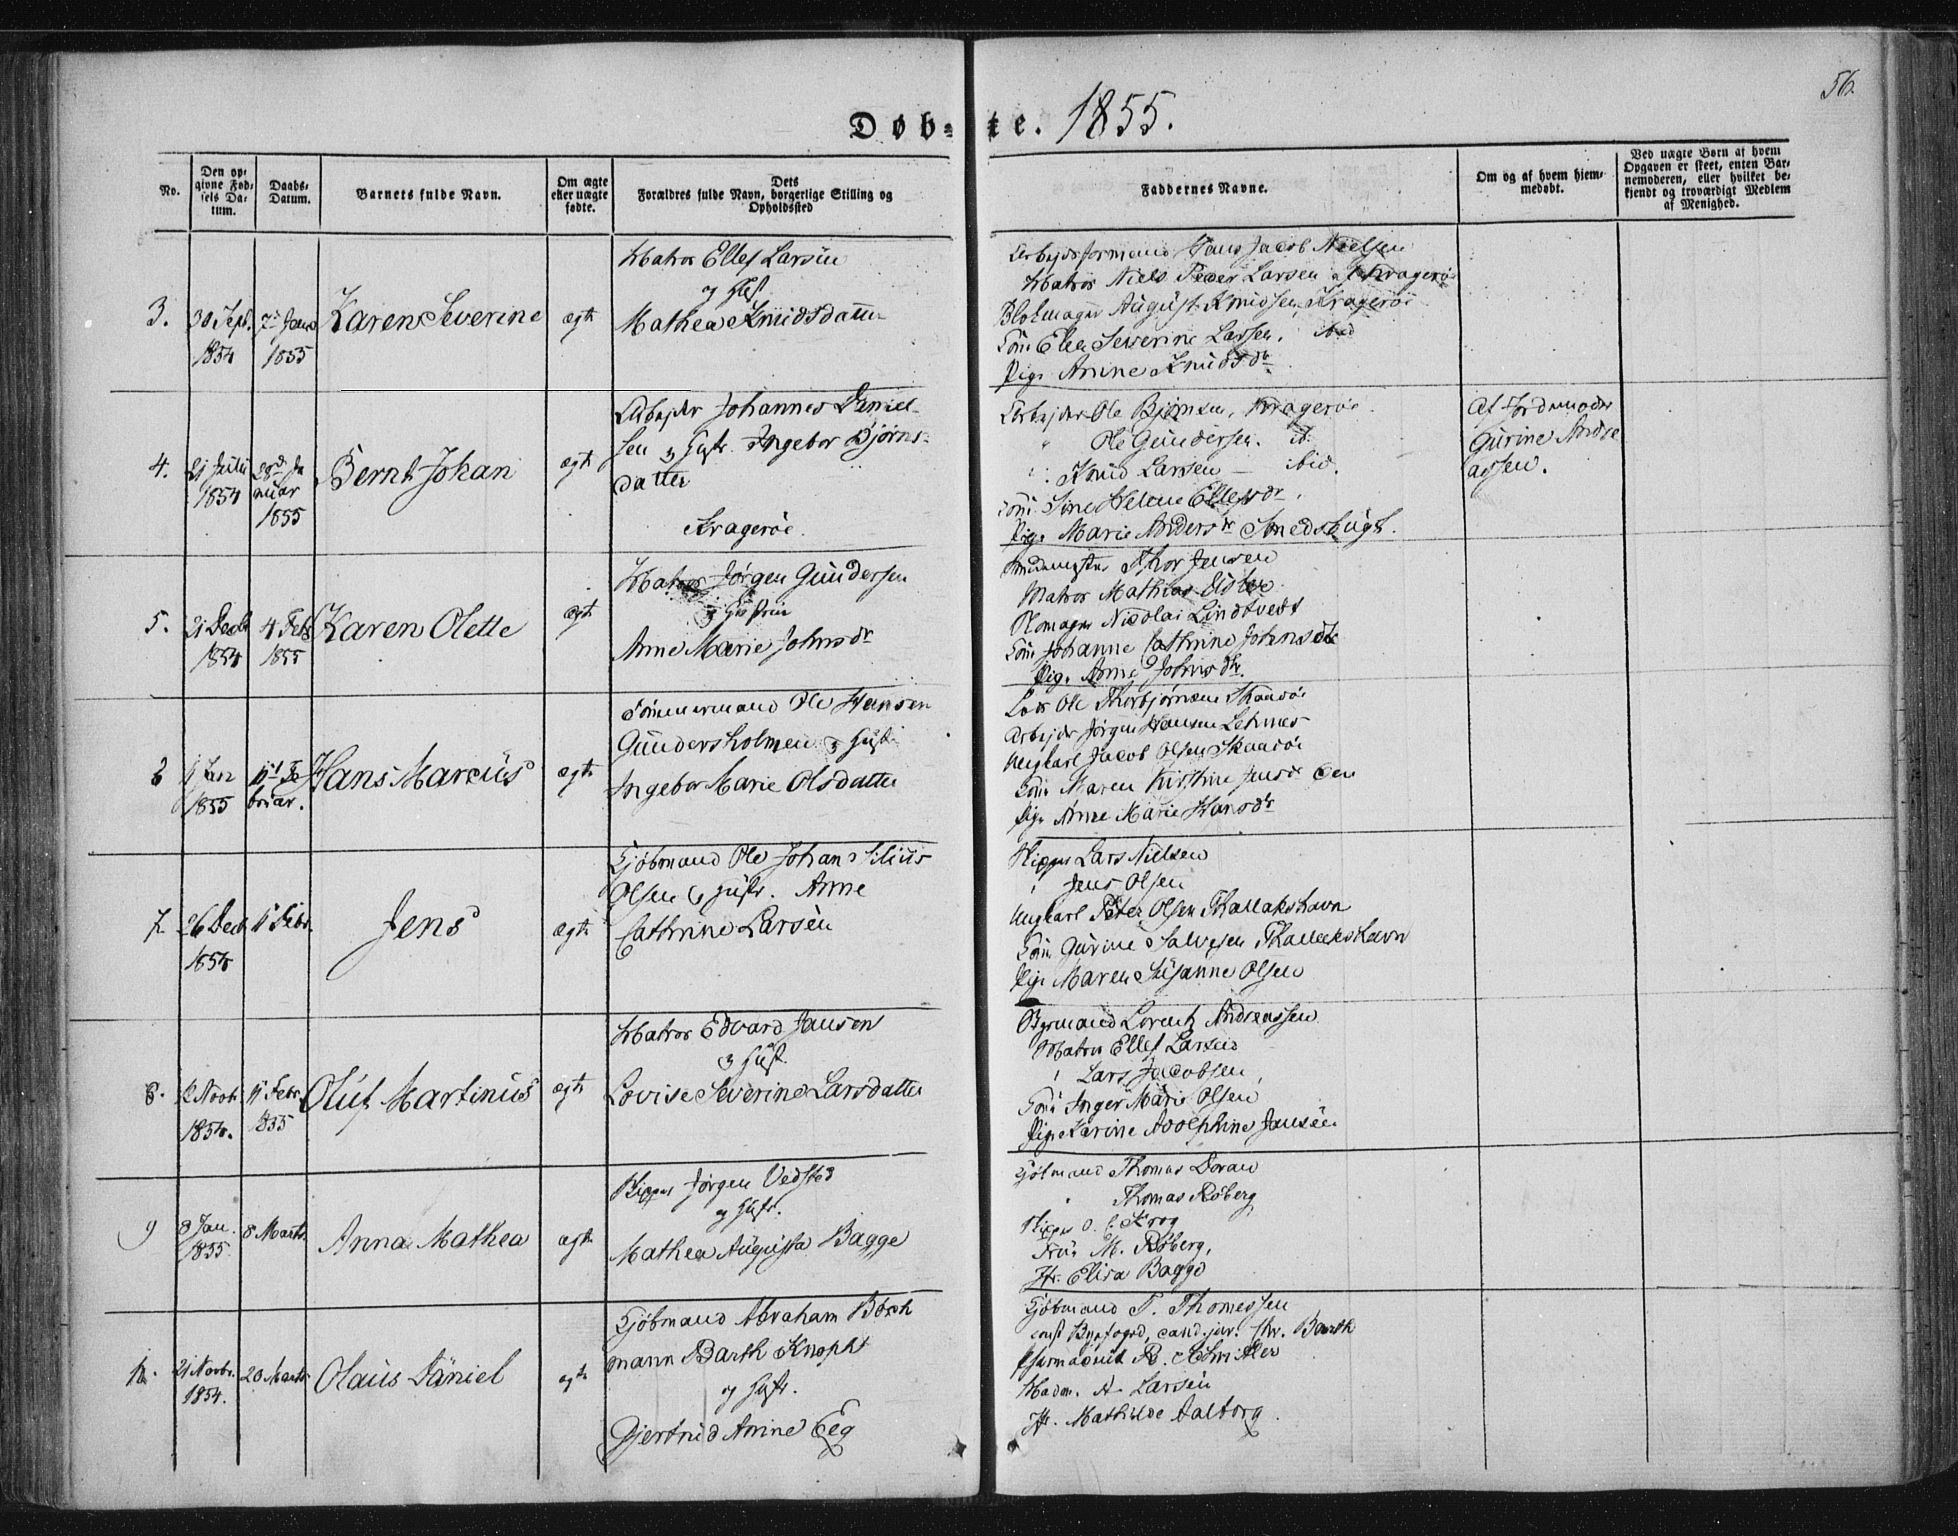 56.
Døb- te. 1855.
No.
Den op-
givne Fød-
sels Da-
tum.
Daabs-
Datum.
Barnets fulde Navn.
Om ægte
eller uægte
fødte.
Dets
Forældres fulde Navn, borgerlige Stilling og
Opholdssted
Faddernes Navne.
Om og af hvem hjem-
medøbt.
Ved uægte Børn af hvem
Opgaven er skeet, enten Bar-
nemoderen, eller hvilket be-
kjendt og troværdigt Medlem
af Menighed.
3.
30 Sept.
1854
7de Janr
1855
Karen Severine
ægte
Matros Ellef Larsen
og Hust
Mathea Knudsdatter
Arbejdsformand Hans Jacob Nielsen
Matros Niels Peder Larsen Kragerøe
Blokmager August Knudsen, Kragerøe
Kone Ellen Severine Larsen. ibid
Pige Anine Knudsdr
4.
21 Julii
1854
28d Ja
nuar
1855
Bernt Johan
ægte
Arbejder Johannes Daniel-
sen og Hustr. Ingebor Bjørns-
datter
Kragerøe.
Arbejder Ole Bjørnsen, Kragerøe
" Ole Gundersen. ib.
" Knud Larsen — ibid.
Kone Sine Helene Ellefsdr.
Pige Marie Andersdr Smedsbugt.
Af Jordemoder
Gurine Andre
assen.
5.
21 Decbr
1854
4 Febr
1855
Karen Olette
ægte
Matros Jørgen Gundersen
og Hustru
Anne Marie Johnsdr
Thor Jensen
Matros Mathias
Nicolai Lindtvedt
Kone Johanne Cathrine Johnsdr
Pige Anne Johnsdr.
6
Jan
1855
11t Fe
bruar.
Hans Marcus
ægte
Tømmermand Ole Hansen
Gundersholmen og Hust
Ingebor Marie Olsdatter
Lods Ole Thorbjørnsen Skaadøe
Arbejder Jørgen Hansen
Ungkarl Jacob Olsen Skaadøe
Kone Maren Kirstine Jensdr
Pige Anne Marie Hansdr
7.
26 Decbr
1854
11 Febr.
Jens
ægte
Kjøbmand Ole Johan Silius
Olsen og Hustr. Anne
Cathrine Larsen
Skipper Lars Nielsen
" Jens Olsen
Ungkarl Peter Olsen Thallakshavn
Kone Gurine Salvesen Thallakshavn
Pige Maren Susanne Olsen
8.
2 Novbr
1854.
11 Febr
1855
Oluf Martinus
ægte
Matros Edvard Jansen
og Hust
Lovise Severine Larsdatter
Byemand Lorentz Andreassen
Matros Ellef Larsen
" Lars Jacobsen
Kone Inger Marie Olsen
Pige Karine Adolphine Jansen
9
8 Jan.
1855.
8 Marts
Anna Mathea
ægte
Skipper Jørgen Vedsted
og Hustr.
Mathea Augusta Bagge
Kjøbmand Thomas Doran
" Thomas Røberg
Skipper O. C. Krog
Frue M. Røberg,
Jfr. Elisa Bagge
10.
21 Novbr.
1854.
20 Marts
Olaus Daniel
ægte
Kjøbmand Abraham Böch
mann Barth Knopht
og Hustr.
Gjertrud Anine Eeg
Kjøbmand T. Thomessen
const Byefoged, cand. jur. Chr. Barth
Pharmaceut R. Schmidler
Madm. A. Larsen
Jfr. Mathilde Aalborg.